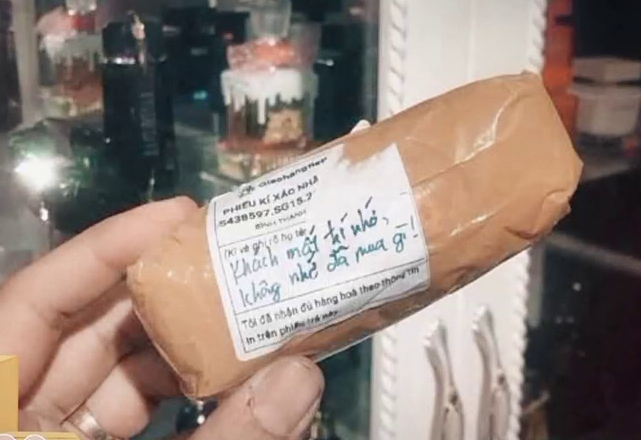 GiaohangNet
PHIẾU KÍ XÁC NHẬ
S438597.SG15.2
BÌNH THẠNH
(Kí và ghi rõ họ tên
Khách mất trí nhớ,
không nhớ đã mua gì!
Tôi đã nhận đủ hàng hoá theo thông tin
in trên phiếu trả này